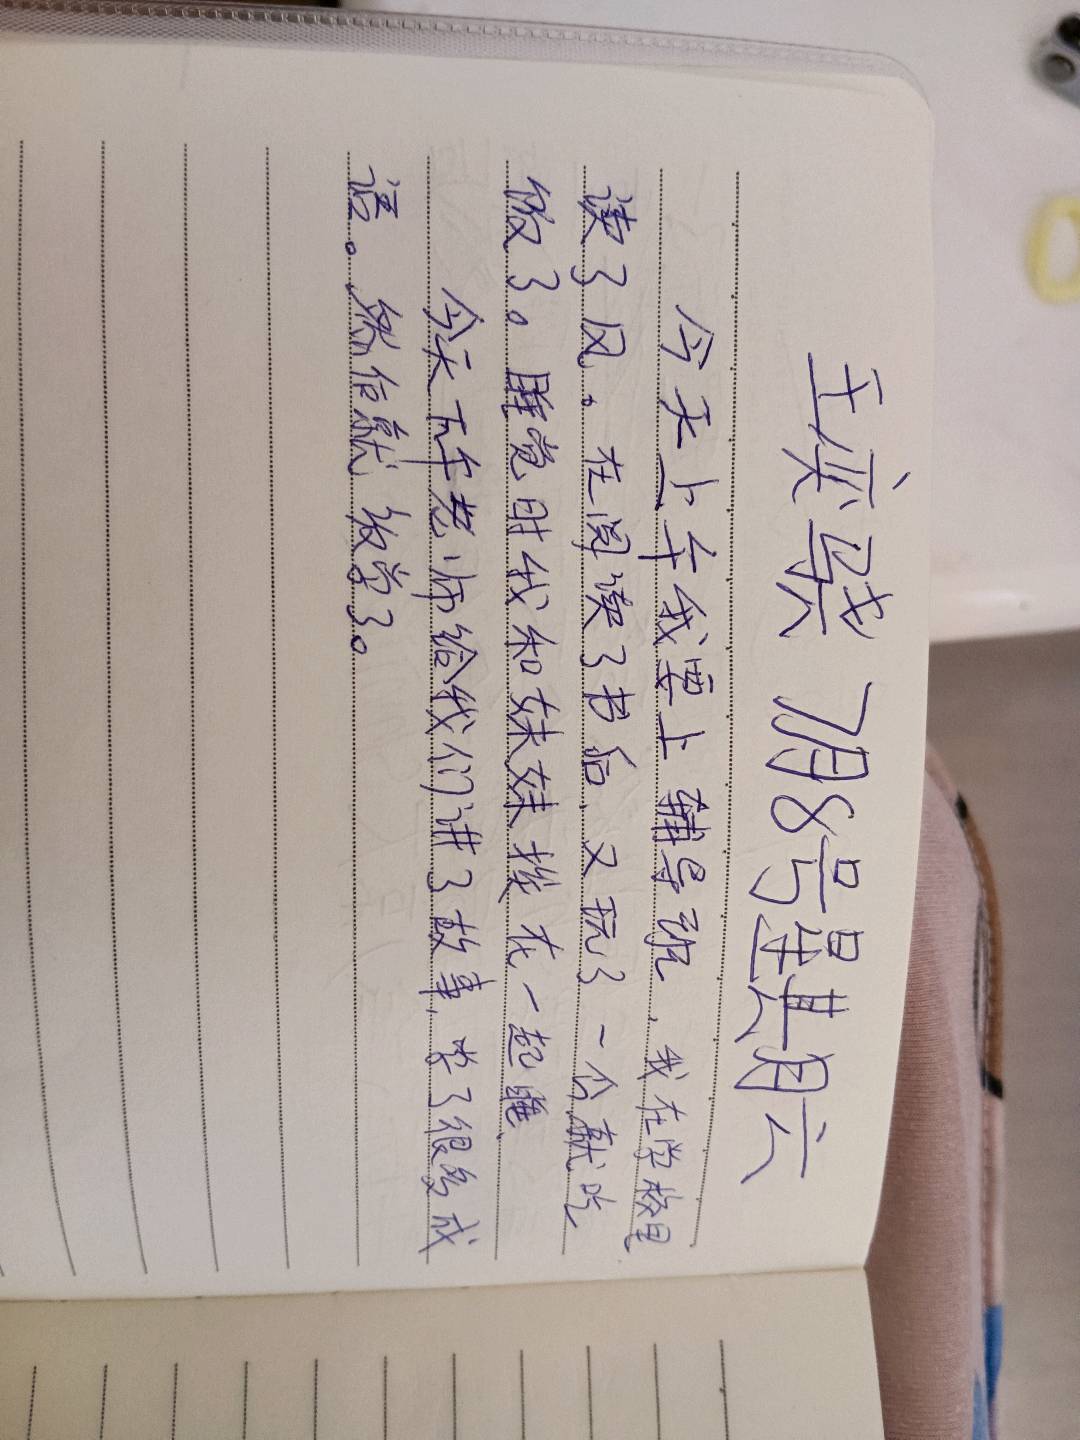 王奕 7月8号星期六
今天上午我要上辅导班，我在学校里
读了风。在阅读了书后，又玩了一个就吃
饭了。睡觉时我和妹妹挨在一起睡，
今天下午老师给我们讲了故事，学了很多成
语。然后就放学了。